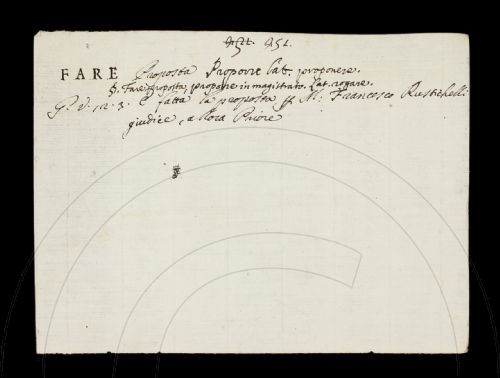 951.
FARE Proposta Proporre Lat. proponere.
§. Fare proposta, proporre in magistrato. Lat. rogare.
G. V. 12. 3. E fatta la proposta p M. Francesco Rustichelli
giudice, allora Priore